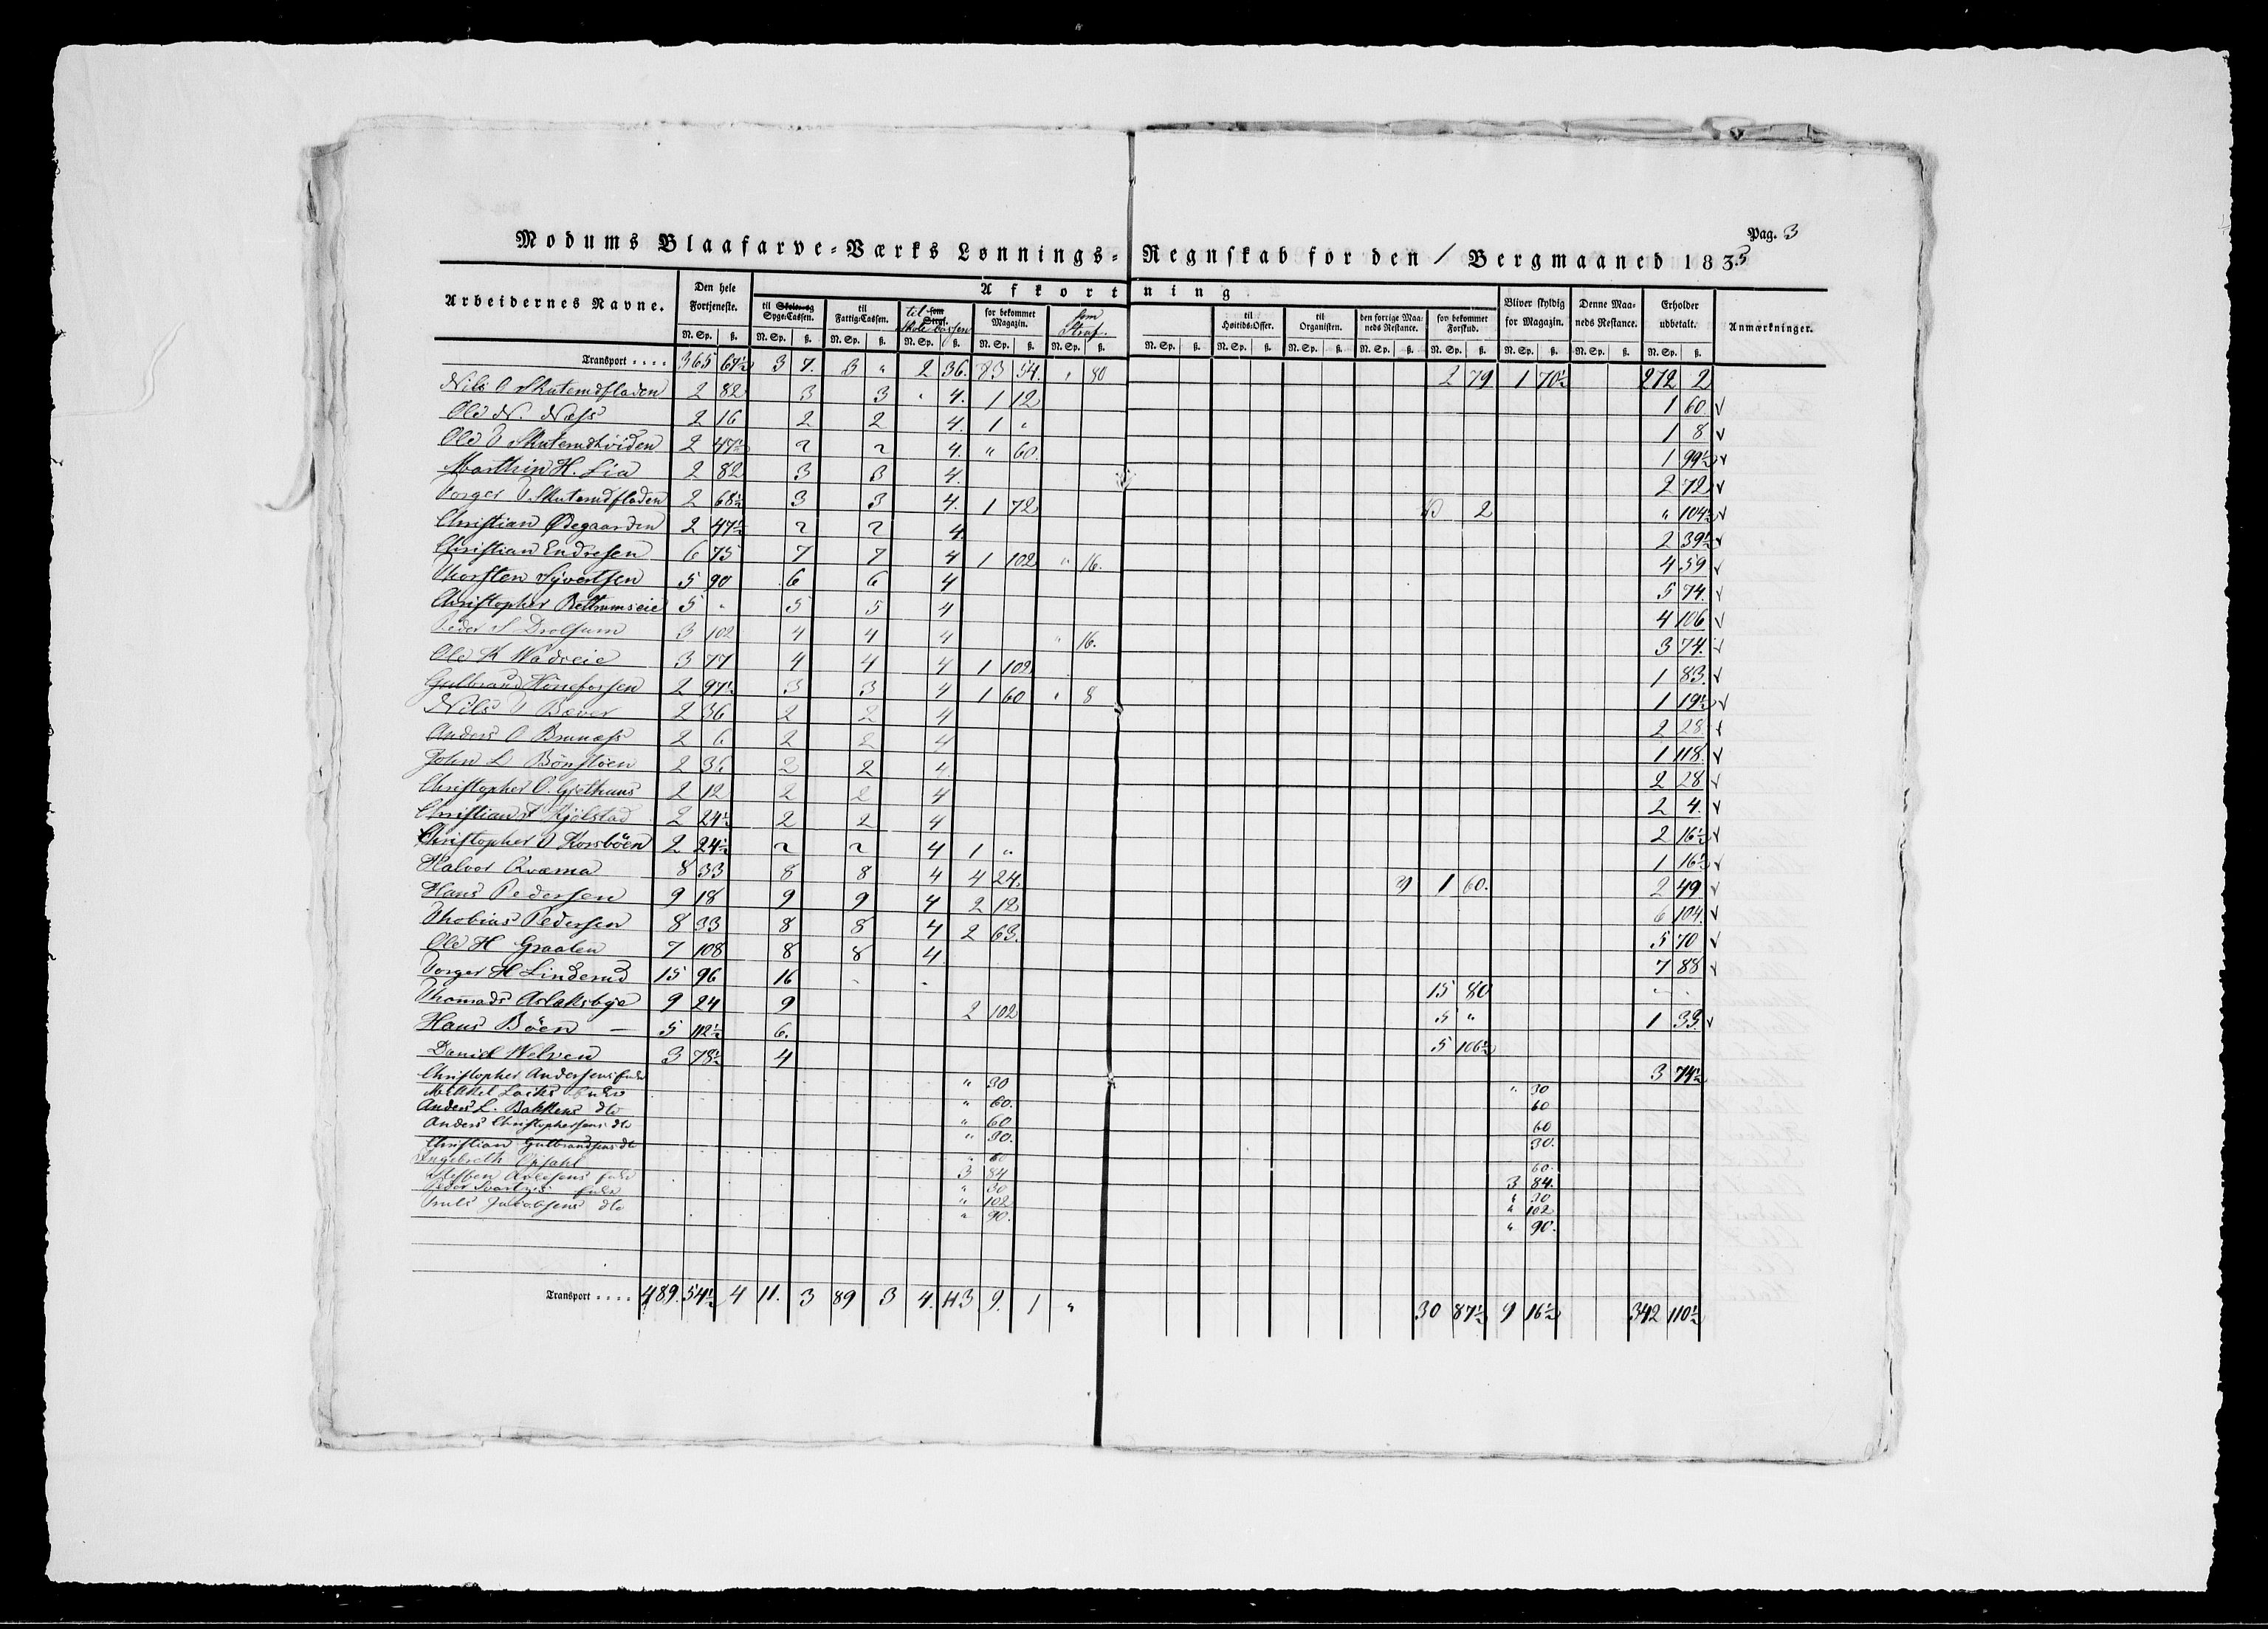 Pag. 3
Modums Blaafarve-Værks Lønnings-Regnskab for den 1 Bergmaaned 1835
Arbeidernes Navne. Den hele Fortjeneste. Afkortning Bliver skyldig for Magazin. Denne Maaneds Restance. Erholder udbetalt. Anmærkninger.
til Skole- og Syge-Cassen. til Fattig-Cassen. til som Straf. Skole-Cassen for bekommet Magazin. som Straf. til Høitids-Offer. til Organisten. den forrige Maaneds Restance. for bekommet Forskud.
N. Sp. ß. N. Sp. ß. N. Sp. ß. N. Sp. ß. N. Sp. ß. N. Sp. ß. N. Sp. ß. N. Sp. ß. N. Sp. ß. N. Sp. ß. N. Sp. ß. N. Sp. ß. N. Sp. ß. N. Sp. ß.
Transport .... 365 67½ 3 7. 3 " 2 36. 83 54. " 80 2 79 1 70½ 272 2
Nils O Skuterudfladen 2 82 3 3 " 4. 1 12 1 60. v
Ole N. Næss 2 16 2 2 4. 1 " 1 8 v
Ole O Skuterudhviden 2 47½ 2 2 4. " 60. 1 99½ v
Marthin H. Lia 2 82 3 3 4. 2 72 v
Torger O. Skuterudfladen 2 68½ 3 3 4. 1 72 2 " 104½ v
Christian Ødegaarden 2 47½ 2 2 4. 2 39½ v
Christian Endresen 6 75 7 7 4 1 102 " 16. 4 59 v
Thorsten Syvertsen 5 90 6 6 4 5 74. v
Christopher 5 " 5 5 4 4 106 v
Peder S Drolsum 3 102 4 4 4 " 16. 3 74. v
Ole K Wadseie 3 77 4 4 4 1 102 1 83. v
Gulbrand Hönefossen 2 97½ 3 3 4 1 60 " 8 1 19½ v
Nils T Bæver 2 36 2 2 4 2 28. v
Anders O Brunæss 2 6 2 2 4 1 118. v
John L Bönstöen 2 36 2 2 4. 2 28 v
Christopher O. Gjethuus 2 12 2 2 4 2 4. v
Christian Kjölstad 2 24½ 2 2 4 2 16½ v
Christopher O Korsböen 2 24½ 2 2 4 1 " 1 16½ v
Halvor Kvæma 8 33 8 8 4 4 24. 1 60. 2 49 v
Hans Pedersen 9 18 9 9 4 2 12 6 104. v
Thobias Pedersen 8 33 8 8 4 2 63. 5 70 v
Ole H Graaten 7 108 8 8 4 7 88 v
Torger H Linderud 15 96 16 - - 15 80 - -
Thomads Aslaksbye 9 24 9 2 102 5 " 1 33. v
Hans Böen — 5 112½ 6. 5 106½
Daniel Welven 3 78½ 4 3 74½
Christopher Andersens Enke " 30 " 30
Mikkel Enke " 60. 60
Anders L. Bakkens dto " 60 60
Anders Christophersens dto " 30. 30.
Christian Gulbrandsens dto " 60 60.
Ingebreth Opsahl 3 84 3 84.
Steffen Enke " 30 " 30
Peder Enke " 102 " 102
Truls Jacobsens dto " 90. " 90.
Transport .... 489. 54½ 4 11. 3 89 3 4. 113. 9. 1 " 30 87½ 9 16½ 342 110½